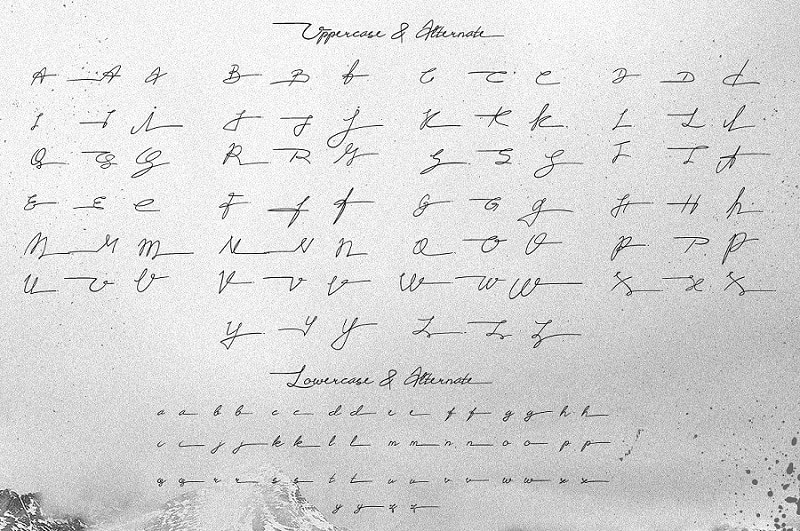 Uppercase & Alternate
A A A B B B C C C D D D
I I I J J J K K K L L L
Q Q Q R R R S S S T T T
E E E F F F G G G H H H
M M M N N N O O O P P P
U U U V V V W W W X X X
Y Y Y Z Z Z
Lowercase & Alternate
a a b b c c d d e e f f g g h h
i i j j k k l l m m n n o o p p
q q r r s s t t u u v v w w x x
y y z z